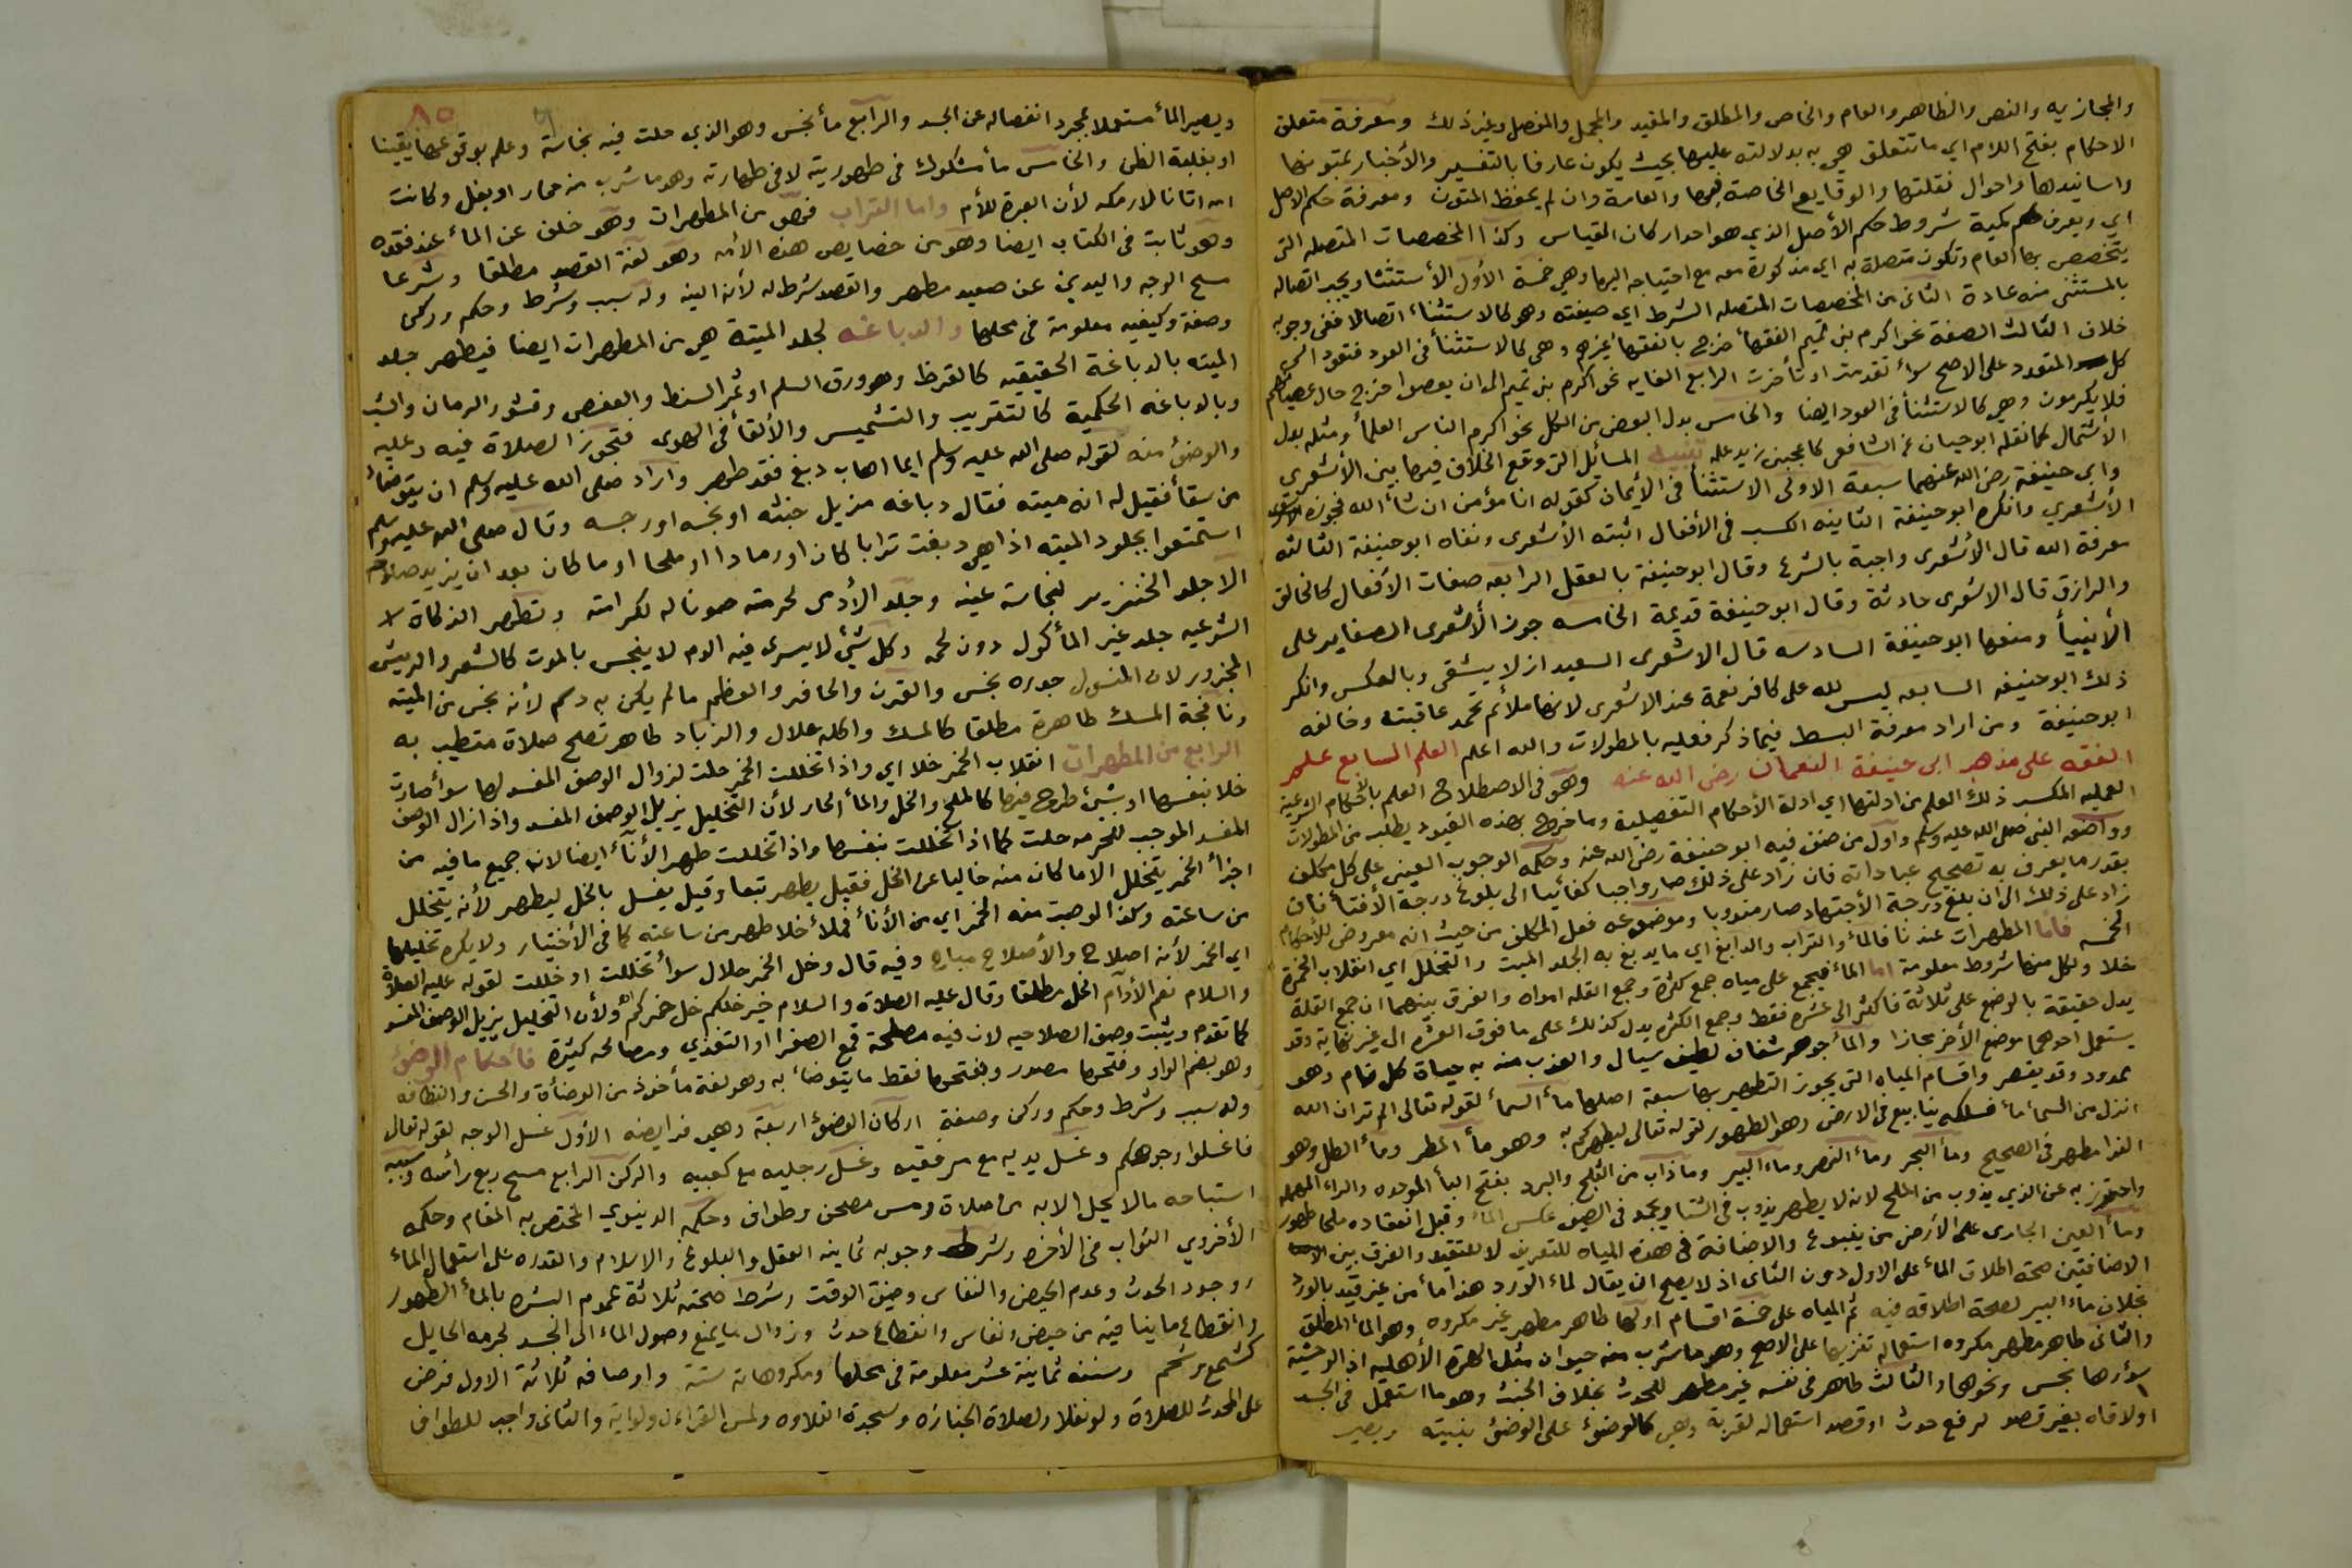 والمجاز يه والنص والظاهر والعام والخاص والمطلق والمقيد والمجمل والمفصل وغير ذلك ومعرفة متعلق
الاحكام بفتح اللام اي ما تتعلق هي به بدلالته عليها بحيث يكون عارفا بالتفسير والأخبار بمتونها
واسانيدها واحوال نقلتها والوقايع الخاصة بها والعامة وان لم يحفظ المتون ومعرفة حكم الاصل
اي ويعرف كمية شروط حكم الأصل الذي هو احد اركان القياس وكذا المخصصات المتصله التى
يتخصص بها العام وتكون متصلة به اي مذكورة معه مع احتياجه اليها وهي خمسة الأول الأستثنا ويجب اتصاله
بالمستثنى منه عادة الثانى من المخصصات المتصله الشرط اي صيغته وهو كالاستثناء اتصالا ففى وجوبه
خلاف الثالث الصفة نحو اكرم بنى تميم الفقهاء خرج بالفقهاء غيرهم وهى كالاستثنأ فى العود فتعود الى
كل المتعدد على الاصح سوآء تقدمت او تأخرت الرابع الغايه نحو اكرم بنى تميم الى ان يعصوا خرج حال عصيانهم
فلا يكرمون وهي كالاستثنأ فى العود ايضا والخامس بدل البعض من الكل نحو اكرم الناس العلمأ ومثله بدل
الأشتمال كما نقله ابو حيان عن الشافعى كاعجبنى زيد علمه تنبيه المسائل التى وقع الخلاف فيها بين الأشعرى
وابى حنيفة رضى الله عنهما سبعة الاولى الاستثنأ فى الأيمان كقوله انا مؤمن ان شأ الله فجوزه
الأشعري وانكره ابو حنيفة الثانيه الكسب فى الأفعال اثبته الأشعرى ونفاه ابو حنيفة الثالثه
معرفة الله قال الأشعرى واجبة بالشرع وقال ابو حنيفة بالعقل الرابعه صفات الأفعال كالخالق
والرازق قال الاشعرى حادثة وقال ابو حنيفة قديمة الخامسه جوز الأشعرى الصغاير على
الأنبيأ ومنعها ابو حنيفة السادسه قال الاشعرى السعيد ازلا يشقى وبالعكس وانكر
ذلك ابو حنيفه السابعه ليس لله على كافر نعمة عند الاشعرى لانها ملائم تحمد عاقبته وخالفه
ابو حنيفة ومن اراد معرفة البسط فيما ذكر فعليه بالمطولات والله اعلم العلم السابع علم
الفقه على مذهب ابى حنيفة النعمان رضى الله عنه وهو فى الاصطلاح العلم بالأحكام الشرعية
العمليه المكسب ذلك العلم من ادلتها اي ادلة الأحكام التفصيلية وما خرج بهذه القيود يطلب من المطولات
وواضعه النبى صلى الله عليه وسلم واول من صنف فيه ابو حنيفة رضى الله عنه وحكمه الوجوب العينى على كل مكلف
بقدر ما يعرف به تصحيح عباداته فان زاد على ذلك صار واجبا كفائيا الى بلوغ درجة الأفتأ فان
زاد على ذلك الى ان بلغ درجة الأجتهاد صار مندوبا وموضوعه فعل المكلف من حيث انه معروض للأحكام
الخمسه فاما المطهرات عندنا فالمأ والتراب والدابغ اي ما يدبغ به الجلد الميت والتخلل اي انقلاب الخمرة
خلا ولكل منها شروط معلومة اما المأ فيجمع على مياه جمع كثرة وجمع القله امواه والفرق بينهما ان جمع القلة
يدل حقيقة بالوضع على ثلاثة فاكثر الى عشره فقط وجمع الكثره يدل كذلك على ما فوق العشره الى غير نهاية وقد
يستعمل احدهما موضع الأخر مجازا والمأ جوهر شفاف لطيف سيال والعذب منه به حياة كل نام وهو
ممدود وقد يقصر واقسام المياه التى يجوز التطهير بها سبعة اصلها مأ السمأ لقوله تعالى الم تر ان الله
انزل من السمأ مأ فسلكه ينابيع فى الارض وهو الطهور لقوله تعالى ليطهركم به وهو مأ المطر ومأ الطل وهو
الندا مطهر فى الصحيح ومأ البحر ومأ النهر وماء البير وما ذاب من الثلج والبرد بفتح البأ الموحده والراء المهمله
واحترز به عن الذي يذوب من الملح لانه لا يطهر يذوب فى الشتا ويجمد فى الصيف عكس المأ وقبل انعقاده ملحا طهور
ومأ العين الجارى على الأرض من ينبوع والاضافة فى هذه المياه للتعريف لا للتقييد والفرق بين
الاضافتين صحة اطلاق المأ على الاول دون الثانى اذ لا يصح ان يقال لماء الورد هذا مأ من غير قيد بالورد
بخلاف مأ البير لصحة اطلاقه فيه ثم المياه على خمسة اقسام اولها طاهر مطهر غير مكروه وهو المأ المطلق
والثانى طاهر مطهر مكروه استعماله تنزيها على الاصح وهو ما شرب منه حيوان مثل الهرة الأهليه اذ الوحشية
سؤرها نجس ونحوها والثالث طاهر فى نفسه غير مطهر للحدث بخلاف الخبث وهو ما استعمل فى الجسد
اولاقاه بغير قصد لرفع حدث او قصد استعماله لقربة وهي كالوضؤ على الوضؤ بنيته ويصير
٨٥
ويصير المأ مستعملا بمجرد انفصاله عن الجسد والرابع مأ نجس وهو الذي حلت فيه نجاسة وعلم وقوعها يقينا
او بغلبة الظن والخامس مأ مشكوك فى طهوريته لا فى طهارته وهو ما شرب منه حمار او بغل وكانت
امه اتانا لا رمكه لأن العبرة للأم واما التراب فهو من المطهرات وهو خلف عن المأ عند فقده
وهو ثابت فى الكتاب ايضا وهو من خصايص هذه الأمه وهو لغة القصد مطلقا وشرعا
مسح الوجه واليدين عن صعيد مطهر والقصد شرط له لأنه النيه وله سبب وشرط وحكم وركن
وصفة وكيفيه معلومة فى محلها والدباغه لجلد الميتة هي من المطهرات ايضا فيطهر جلد
الميته بالدباغة الحقيقيه كالقرظ وهو ورق السلم او ثمر السنط والعفص وقشور الرمان والشب
وبالدباغه الحكمية كالتتريب والتشميس والألقأ فى الهوى فتجوز الصلاة فيه وعليه
والوضؤ منه لقوله صلى الله عليه وسلم ايما اهاب دبغ فقد طهر واراد صلى الله عليه وسلم ان يتوضأ
من سقأ فقيل له انه ميته فقال دباغه مزيل خبثه او نجسه او رجسه وقال صلى الله عليه وسلم
استمتعوا بجلود الميته اذا هي دبغت ترابا كان او رمادا او ملحا او ما كان بعد ان يزيد صلاحه
الا جلد الخنزير لنجاسة عينه وجلد الأدمى لحرمته صونا له لكرامته وتطهر الذكاة
الشرعيه جلد غير المأكول دون لحمه وكل شئ لا يسرى فيه الدم لا ينجس بالموت كالشعر والريش
المجزور لان المنسول جذره نجس والقرن والحافر والعظم ما لم يكن به دسم لأنه نجس من الميته
ونافجة المسك طاهرة مطلقا كالمسك واكله حلال والزباد طاهر تصح صلاة متطيب به
الرابع من المطهرات انقلاب الخمر خلا اي واذا تخللت الخمر حلت لزوال الوصف المفسد لها سوأ صارت
خلا بنفسها او بشئ طرح فيها كالملح والخل والمأ الحار لأن التخليل يزيل الوصف المفسد واذا زال الوصف
المفسد الموجب للحرمه حلت كما اذا تخللت بنفسها واذا تخللت طهر الأنآء ايضا لان جميع ما فيه من
اجزأ الخمر يتخلل الا ما كان منه خاليا عن الخل فقيل يطهر تبعا وقيل يغسل بالخل ليطهر لأنه يتخلل
من ساعته وكذا لو صبت منه الخمر اي من الأنأ فملأ خلا طهر من ساعته كما فى الأختيار ولا يكره تخليلها
اي الخمر لأنه اصلاح والأصلاح مباح وفيه قال وخل الخمر حلال سوأ تخللت او خللت لقوله عليه الصلاة
والسلام نعم الأدام الخل مطلقا وقال عليه الصلاة والسلام خير خلكم خل خمركم ولأن التخليل يزيل الوصف المفسد
كما تقدم ويثبت وصف الصلاحيه لان فيه مصلحة قمع الصفرا او التغذي ومصالحه كثيرة فأحكام الوضؤ
وهو بضم الواو وفتحها مصدر وبفتحها فقط ما يتوضأ به وهو لغة مأخوذ من الوضأة والحسن والنظافه
وله سبب وشرط وحكم وركن وصفة اركان الوضؤ اربعة وهي فرايضه الأول غسل الوجه لقوله تعالى
فاغسلوا وجوهكم وغسل يديه مع مرفقيه وغسل رجليه مع كعبيه والركن الرابع مسح ربع رأسه وسببه
استباحه ما لا يحل الا به من صلاة ومس مصحف وطواف وحكمه الدنيوي المختص به المقام وحكمه
الأخروي الثواب فى الأخره وشرط وجوبه ثمانيه العقل والبلوغ والاسلام والقدره على استعمال المأ
ووجود الحدث وعدم الحيض والنفاس وضيق الوقت وشرط صحته ثلاثة عموم البشره بالمأ الطهور
وانقطاع ما ينافيه من حيض ونفاس وانقطاع حدث وزوال ما يمنع وصول الماء الى الجسد لجرمه الحايل
كشمع وشحم وسننه ثمانية عشر معلومة فى محلها ومكروهاته ستة واوصافه ثلاثة الاول فرض
على المحدث للصلاة ولو نفلا ولصلاة الجنازه وسجدة التلاوه ولمس القرءان ولو اية والثانى واجب للطواف